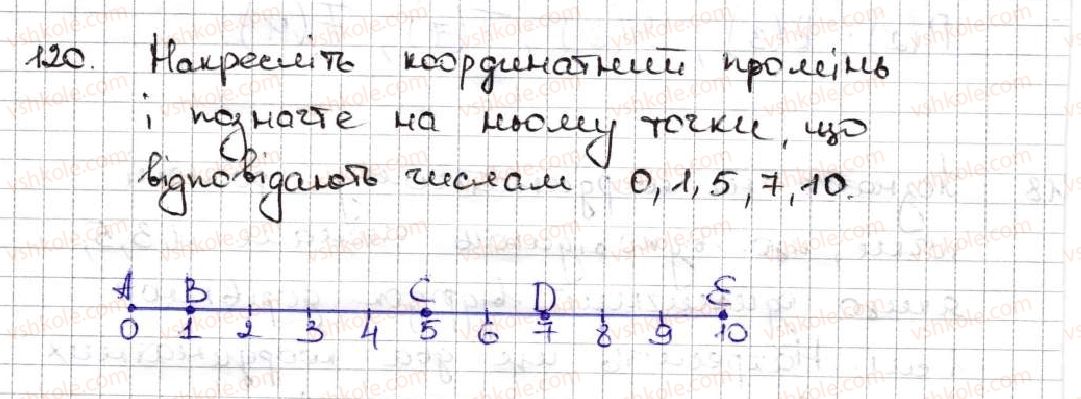 120. Накресліть координатний промінь
і позначте на ньому точки, що
відповідають числам 0, 1, 5, 7, 10.
A B C D E
0 1 2 3 4 5 6 7 8 9 10